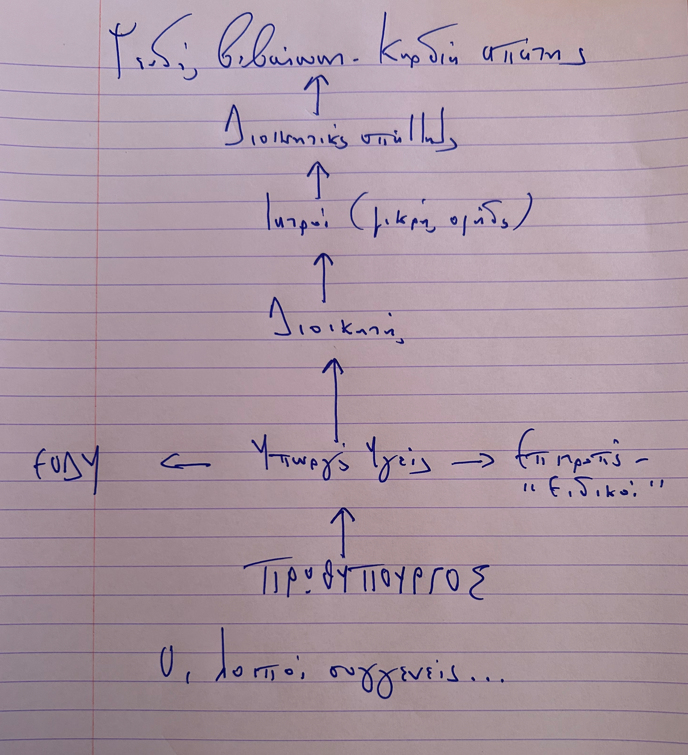 Ψευδής βεβαίωση - Κηρδία απάτης
Διοικητικός υπάλληλος
Ιατροί (μικρής ομάδας)
Διοικητής
ΕΟΔΥ ← Υπουργός Υγείας → Επιτροπές -
"Ειδικοί"
ΠΡΩΘΥΠΟΥΡΓΟΣ
Οι λοιποί συγγενείς...